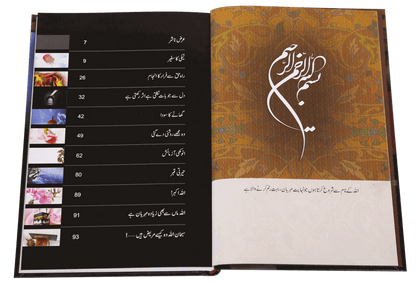 عرض ناشر 7
نیکی کا سفیر 9
راہ حق سے فرار کا انجام 26
دل سے جو بات نکلتی ہے اثر رکھتی ہے 32
گھاٹے کا سودا 42
وہ مجھے روشنی دے گئی 49
انوکھی آزمائش 62
حیرتی قبر 80
اللہ اکبر! 89
اللہ ماں سے بھی زیادہ مہربان ہے 91
سبحان اللہ وہ کیسے مریض ہیں ---! 93
بسم الله الرحمن الرحيم
اللہ کے نام سے شروع کرتا ہوں جو نہایت مہربان، بہت رحم کرنے والا ہے